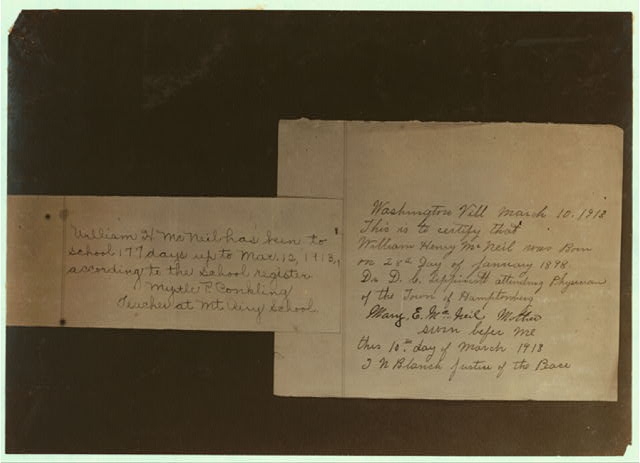 William H. McNeil has been to
school 177 days up to Mar. 12, 1913,
according to the school register
Myrtle E. Conkling
Teacher at Mt. Airy School.
Washington Vill March 10. 1913
This is to certify that
William Henry McNeil was Born
on 28th day of January 1898.
Dr D. C. attending Physician
of the Town of Hamptonburg
Mary E. McNeil Mother
sworn befer me
this 10th day of March 1913
Justice of the Peace